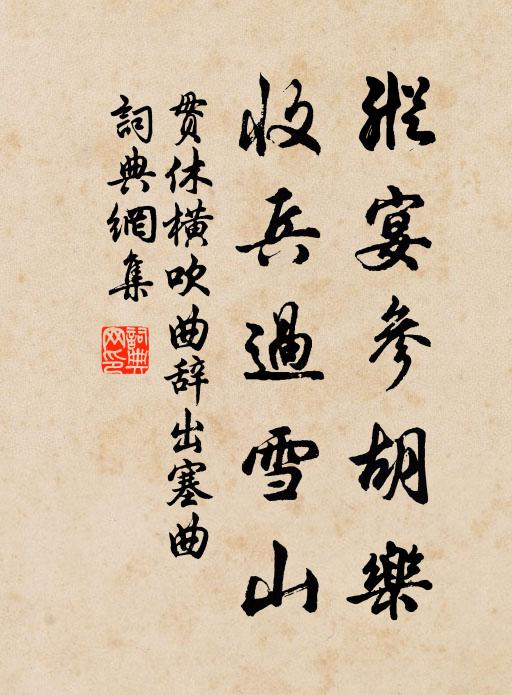 縱宴參胡樂
收兵過雪山
贯休橫吹曲辞出塞曲
詞典網集
詞典
网印